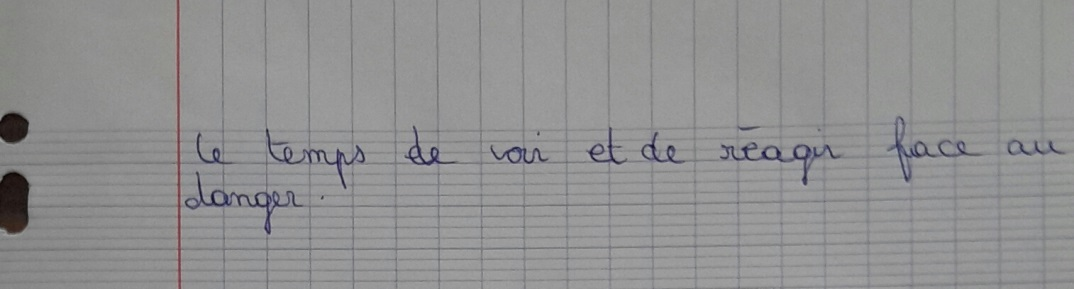 le temps de voir et de réagir face au
danger.